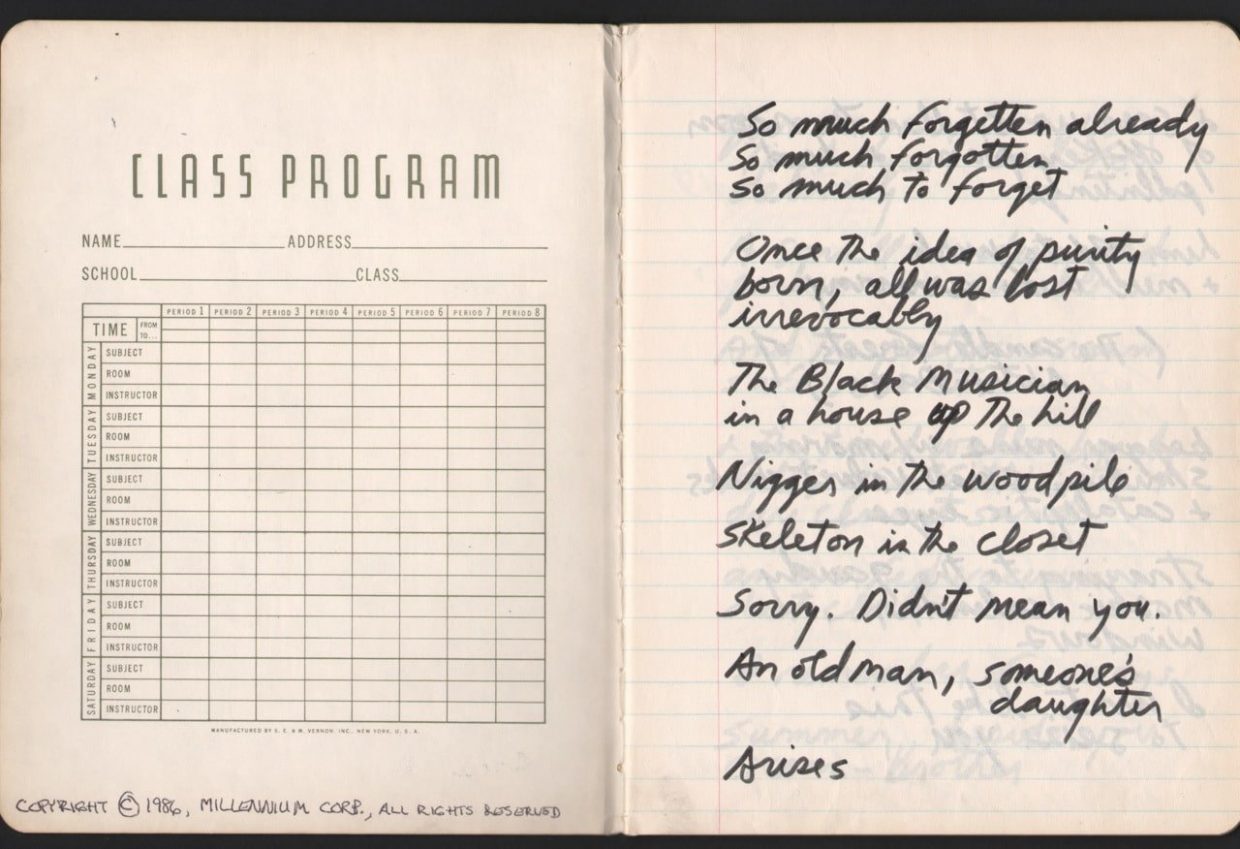 CLASS PROGRAM
NAME ADDRESS
SCHOOL CLASS
PERIOD 1 PERIOD 2 PERIOD 3 PERIOD 4 PERIOD 5 PERIOD 6 PERIOD 7 PERIOD 8
TIME FROM
TO...
MONDAY
SUBJECT
ROOM
INSTRUCTOR
TUESDAY
SUBJECT
ROOM
INSTRUCTOR
WEDNESDAY
SUBJECT
ROOM
INSTRUCTOR
THURSDAY
SUBJECT
ROOM
INSTRUCTOR
FRIDAY
SUBJECT
ROOM
INSTRUCTOR
SATURDAY
SUBJECT
ROOM
INSTRUCTOR
MANUFACTURED BY S. E. & M. VERNON, INC., NEW YORK, U. S. A.
COPYRIGHT © 1986, MILLENNIUM CORP., ALL RIGHTS RESERVED
So much forgotten already
So much forgotten
So much to forget
Once the idea of purity
born, all was lost
irrevocably
The Black Musician
in a house up the hill
Nigger in the woodpile
Skeleton in the closet
Sorry. Didn't mean you.
An old man, someone's
daughter
Arises